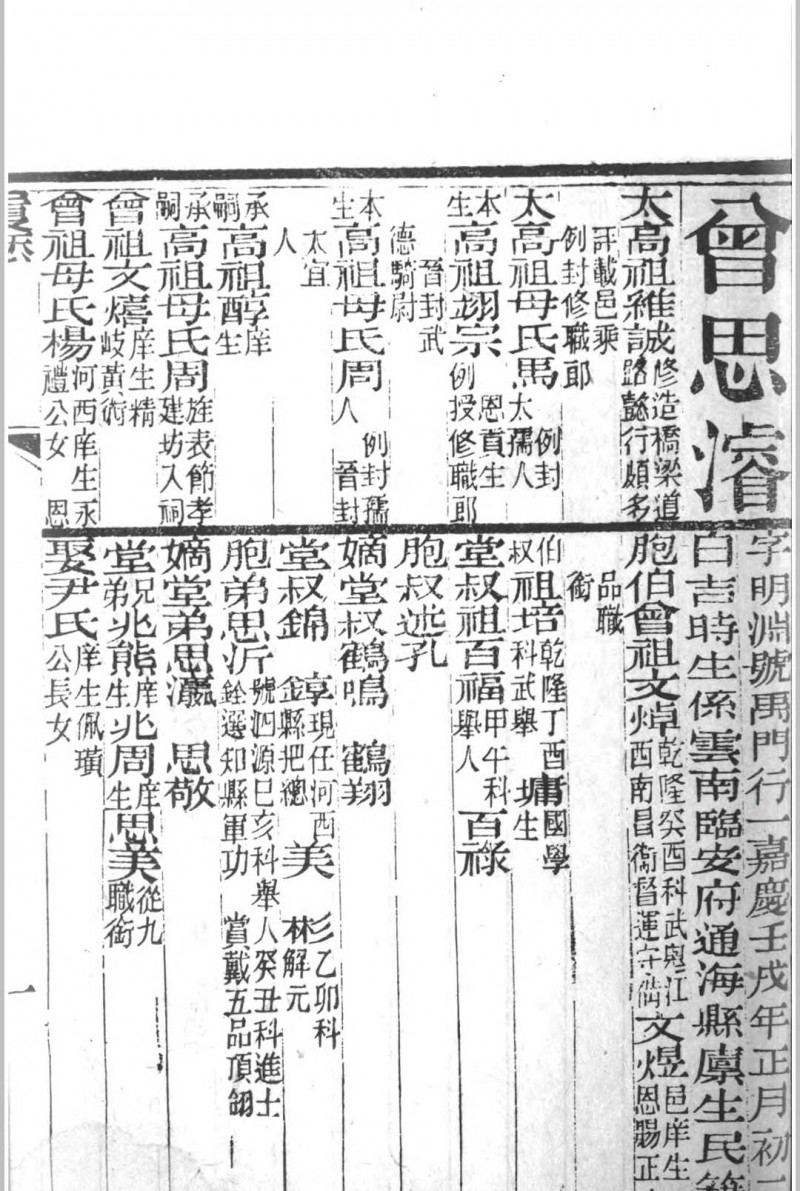 曾思濬
字明淵號禹門行一嘉慶壬戌年正月初
白吉時生係雲南臨安府通海縣廩生民
太高祖維誠 修造橋梁道
路懿行頗多
詳載邑乘
例封修職郎
太高祖母氏馬 例封
太孺人
本
生高祖翊宗 恩貢生
例授修職郎
晉封武
德騎尉
本
生高祖母氏周 例封孺
人 晉封
太宜
人
承
嗣高祖醇 庠
生
承
嗣高祖母氏周 旌表節孝
建坊入祠
曾祖文熺 庠生精
岐黃術
曾祖母氏楊 河西庠生永
禮公女 恩
胞伯曾祖文焯 乾隆癸酉科武魁江
西南昌衛督運守備
文煜 邑庠生
恩賜正
品職
銜
伯
叔祖培 乾隆丁酉
科武舉
墉 國學
生
堂叔祖百福 甲午科
舉人
百祿
胞叔述孔
嫡堂叔鶴鳴 鶴翔
堂叔錦 錞 現任河西
金縣把總
美 彬 乙卯科
林 解元
胞弟思沂 號泗源己亥科舉人癸丑科進士
銓選知縣軍功 賞戴五品頂翎
嫡堂弟思瀛 思敬
堂兄
弟兆熊 庠
生
兆周 庠
生
思美 從九
職銜
娶尹氏 庠生佩璜
公長女
一